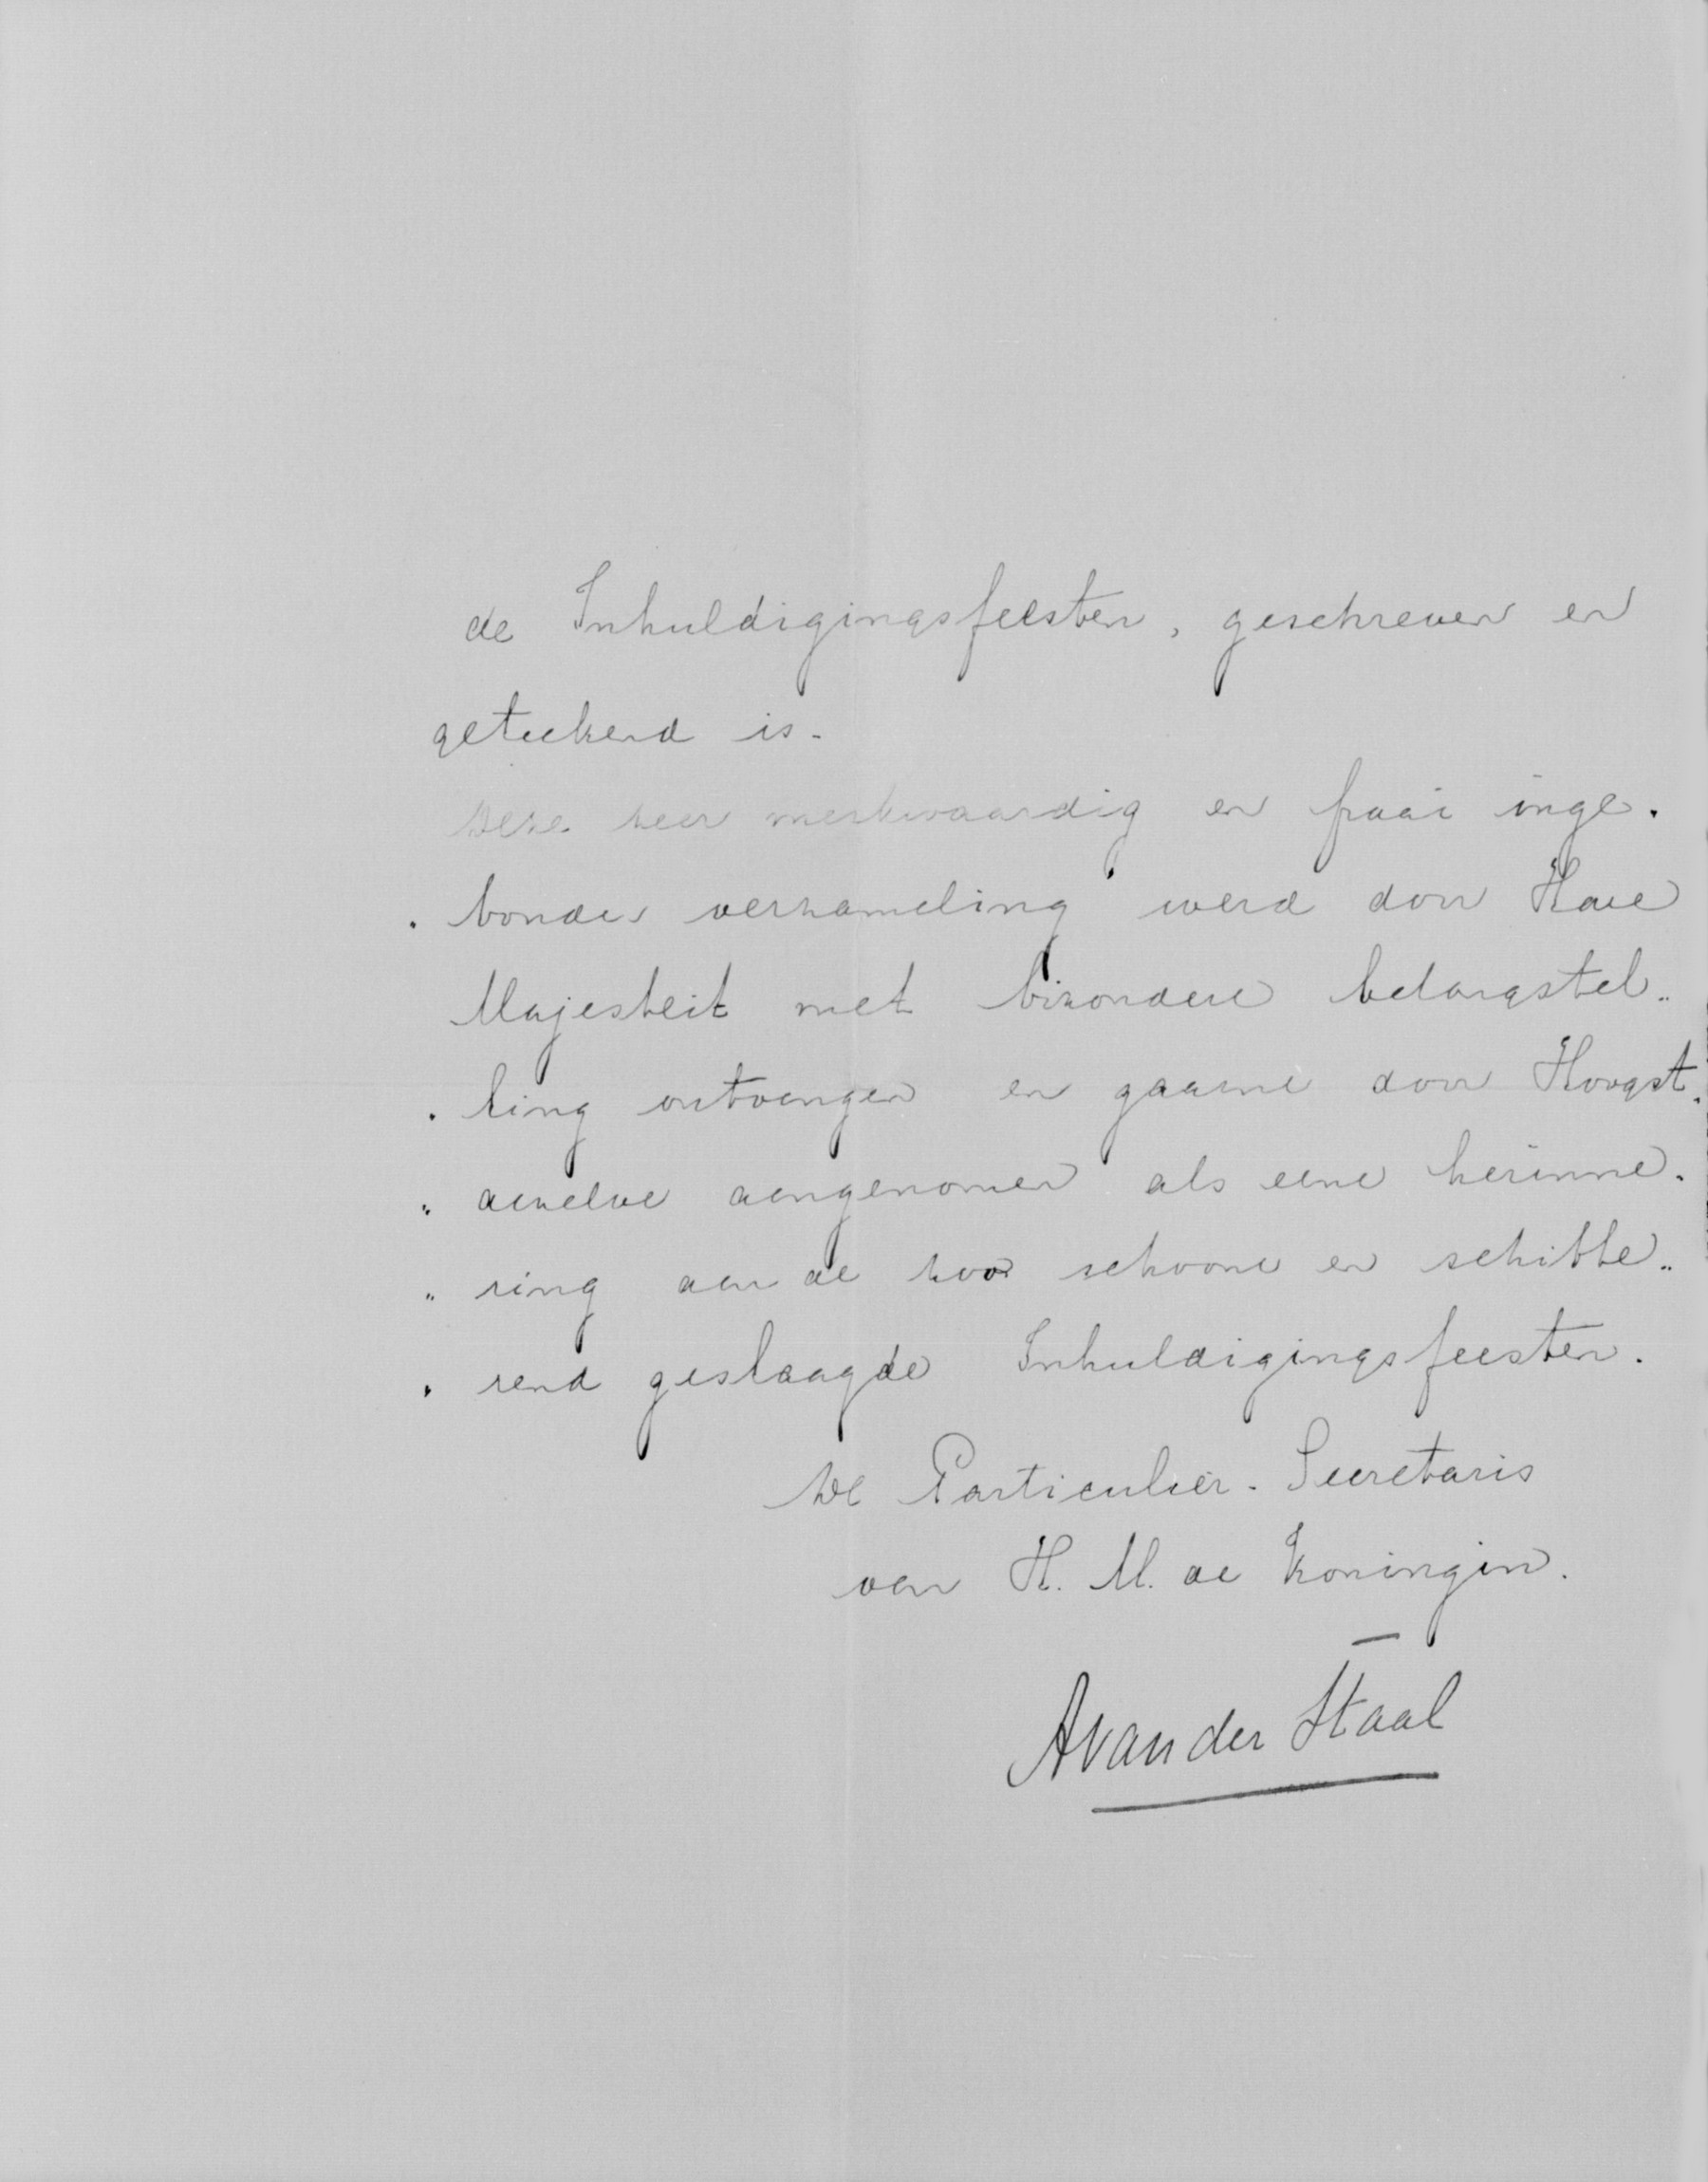 de Inhuldigingsfeesten, geschreven en
geteekend is.
Deze zeer merkwaardig en fraai inge-
"bonden verzameling werd door Hare
Majesteit met bizondere belangstel-
"ling ontvangen en gaarne door Hoogst-
"dezelve aangenomen als eene herinne-
"ring aan de zoo schoone en schitte-
"rend geslaagde Inhuldigingsfeesten.
De Particulier-Secretaris
van H. M. de Koningin.
A van der Staal